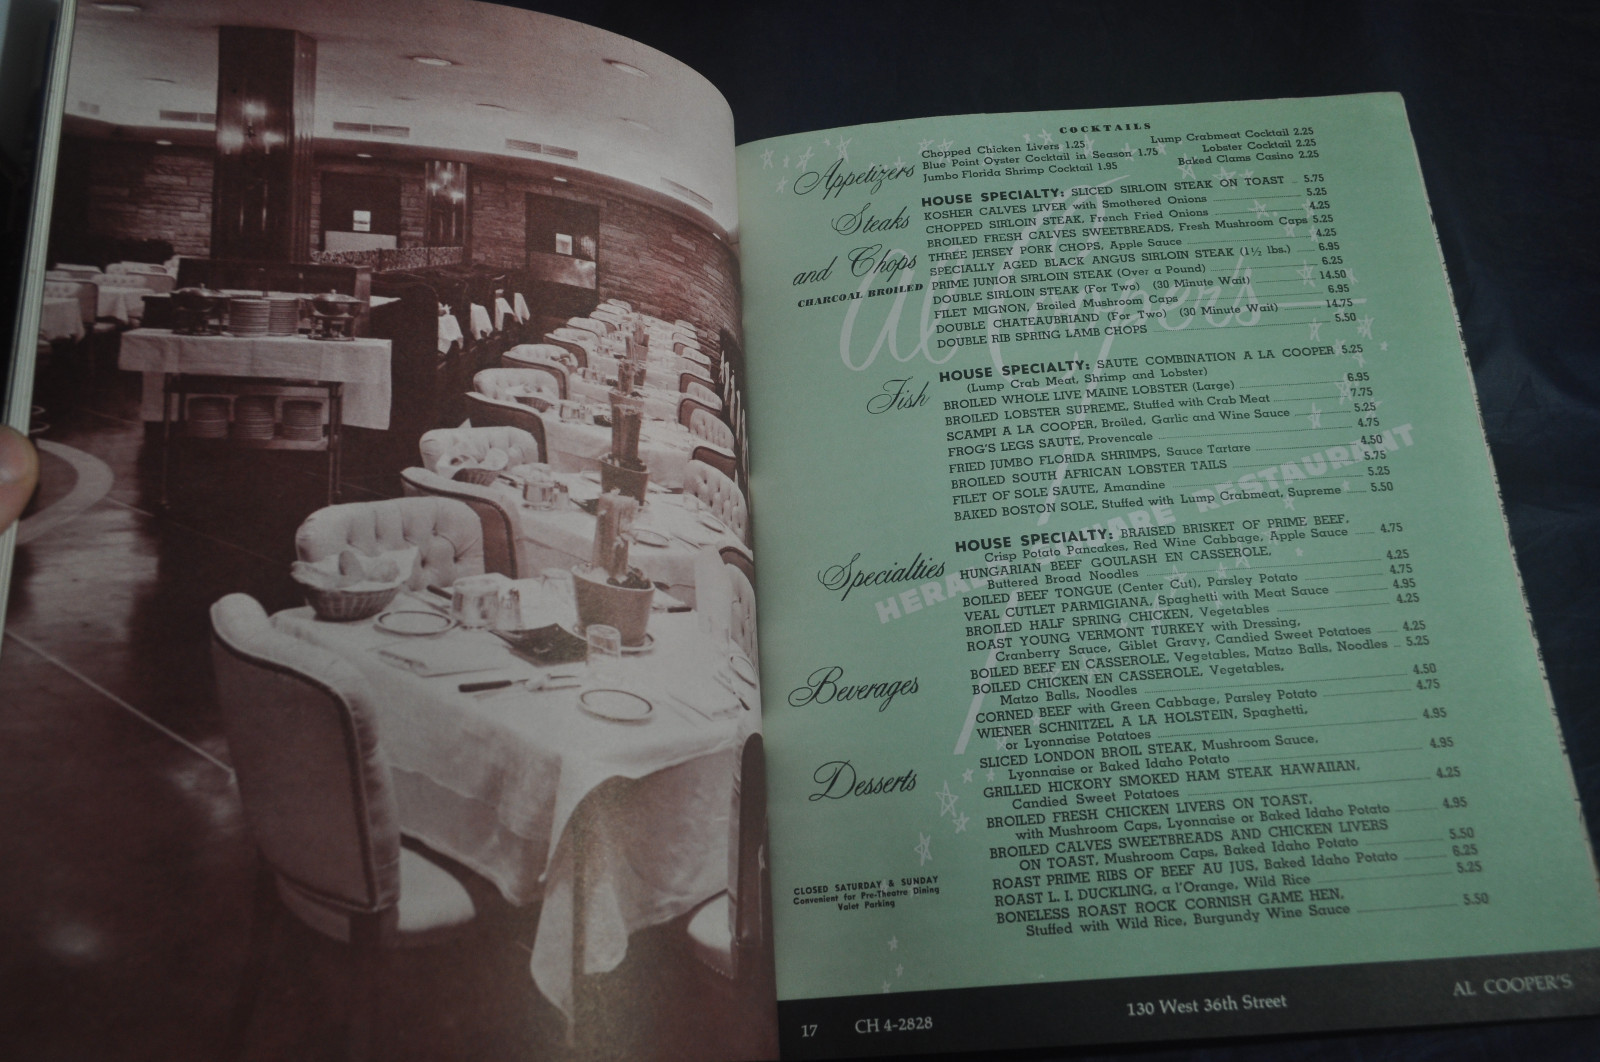 COCKTAILS
Appetizers
Chopped Chicken Livers 1.25 Lump Crabmeat Cocktail 2.25
Blue Point Oyster Cocktail in Season 1.75 Lobster Cocktail 2.25
Jumbo Florida Shrimp Cocktail 1.95 Baked Clams Casino 2.25
Steaks
and Chops
CHARCOAL BROILED
HOUSE SPECIALTY: SLICED SIRLOIN STEAK ON TOAST 5.75
KOSHER CALVES LIVER with Smothered Onions 5.25
CHOPPED SIRLOIN STEAK, French Fried Onions 4.25
BROILED FRESH CALVES SWEETBREADS, Fresh Mushroom Caps 5.25
THREE JERSEY PORK CHOPS, Apple Sauce 4.25
SPECIALLY AGED BLACK ANGUS SIRLOIN STEAK (1½ lbs.) 6.95
PRIME JUNIOR SIRLOIN STEAK (Over a Pound) 6.25
DOUBLE SIRLOIN STEAK (For Two) (30 Minute Wait) 14.50
FILET MIGNON, Broiled Mushroom Caps 6.95
DOUBLE CHATEAUBRIAND (For Two) (30 Minute Wait) 14.75
DOUBLE RIB SPRING LAMB CHOPS 5.50
Fish
HOUSE SPECIALTY: SAUTE COMBINATION A LA COOPER 5.25
(Lump Crab Meat, Shrimp and Lobster)
BROILED WHOLE LIVE MAINE LOBSTER (Large) 6.95
BROILED LOBSTER SUPREME, Stuffed with Crab Meat 7.75
SCAMPI A LA COOPER, Broiled, Garlic and Wine Sauce 5.25
FROG'S LEGS SAUTE, Provencale 4.75
FRIED JUMBO FLORIDA SHRIMPS, Sauce Tartare 4.50
BROILED SOUTH AFRICAN LOBSTER TAILS 5.75
FILET OF SOLE SAUTE, Amandine 5.25
BAKED BOSTON SOLE, Stuffed with Lump Crabmeat, Supreme 5.50
Specialties
HOUSE SPECIALTY: BRAISED BRISKET OF PRIME BEEF,
Crisp Potato Pancakes, Red Wine Cabbage, Apple Sauce 4.75
HUNGARIAN BEEF GOULASH EN CASSEROLE,
Buttered Broad Noodles 4.25
BOILED BEEF TONGUE (Center Cut), Parsley Potato 4.75
VEAL CUTLET PARMIGIANA, Spaghetti with Meat Sauce 4.95
BROILED HALF SPRING CHICKEN, Vegetables 4.25
ROAST YOUNG VERMONT TURKEY with Dressing,
Cranberry Sauce, Giblet Gravy, Candied Sweet Potatoes 4.25
BOILED BEEF EN CASSEROLE, Vegetables, Matzo Balls, Noodles 5.25
BOILED CHICKEN EN CASSEROLE, Vegetables,
Matzo Balls, Noodles 4.50
CORNED BEEF with Green Cabbage, Parsley Potato 4.75
WIENER SCHNITZEL A LA HOLSTEIN, Spaghetti,
or Lyonnaise Potatoes 4.95
SLICED LONDON BROIL STEAK, Mushroom Sauce,
Lyonnaise or Baked Idaho Potato 4.95
GRILLED HICKORY SMOKED HAM STEAK HAWAIIAN,
Candied Sweet Potatoes 4.25
BROILED FRESH CHICKEN LIVERS ON TOAST,
with Mushroom Caps, Lyonnaise or Baked Idaho Potato 4.95
BROILED CALVES SWEETBREADS AND CHICKEN LIVERS
ON TOAST, Mushroom Caps, Baked Idaho Potato 5.50
ROAST PRIME RIBS OF BEEF AU JUS, Baked Idaho Potato 6.25
ROAST L. I. DUCKLING, a l'Orange, Wild Rice 5.25
BONELESS ROAST ROCK CORNISH GAME HEN,
Stuffed with Wild Rice, Burgundy Wine Sauce 5.50
Beverages
Desserts
CLOSED SATURDAY & SUNDAY
Convenient for Pre-Theatre Dining
Valet Parking
Al Cooper's
HERALD SQUARE RESTAURANT
17 CH 4-2828 130 West 36th Street AL COOPER'S